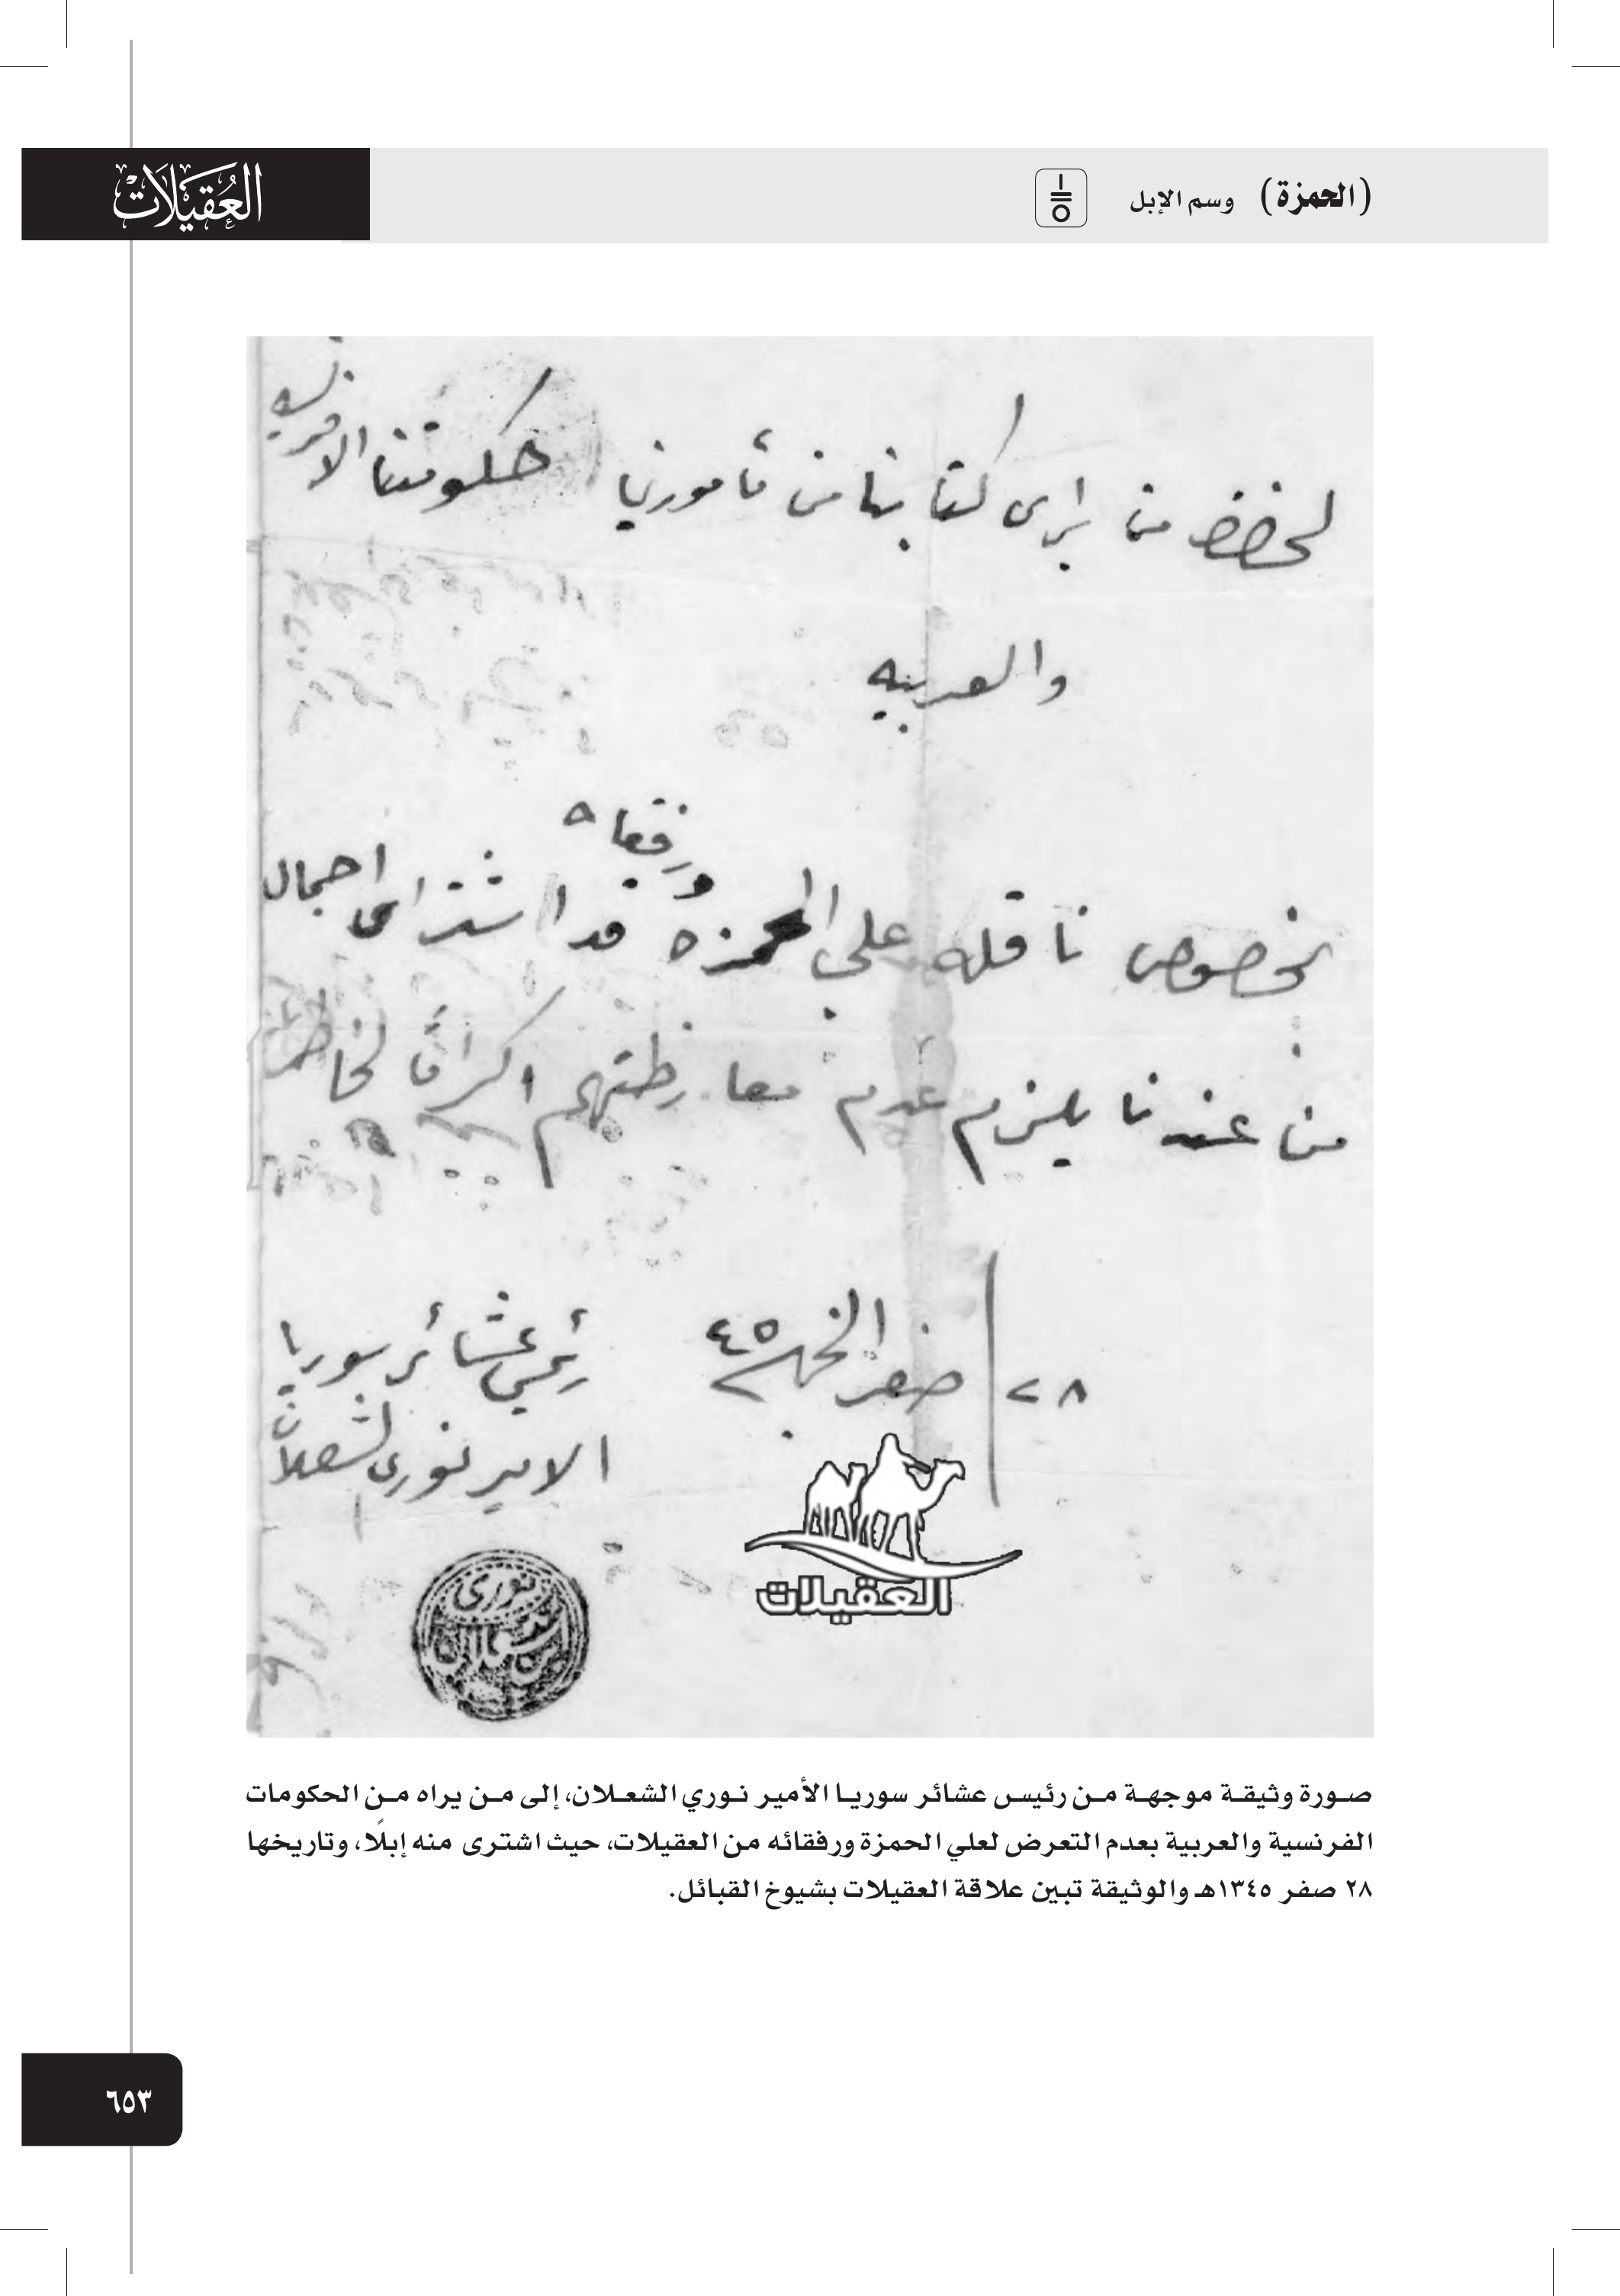 (الحمزة) وسم الإبل
العُقَيلَات
لحضض من يرى كتابنا من مأمورين حكومتنا الافرنسيه
والعربيه
ورفقاه
بخصوص ناقله علي الحمزه قد اشترى اجمال
من عندنا يلزم عدم معارظتهم اكراماً لخاطرنا
٢٨ صفر الخير ٤٥
رئيس عشائر سوريا
الامير نورى الشعلان
نورى
شعلان
العقيلات
صورة وثيقة موجهة من رئيس عشائر سوريا الأمير نوري الشعلان، إلى من يراه من الحكومات
الفرنسية والعربية بعدم التعرض لعلي الحمزة ورفقائه من العقيلات، حيث اشترى منه إبلًا، وتاريخها
٢٨ صفر ١٣٤٥هـ والوثيقة تبين علاقة العقيلات بشيوخ القبائل.
٦٥٣